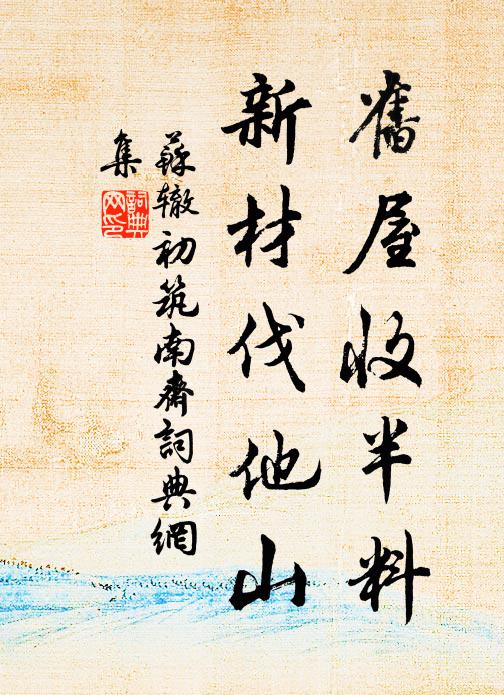 舊屋收半料
新材伐他山
蘇辙初筑南齋詞典網
集
詞典
网印